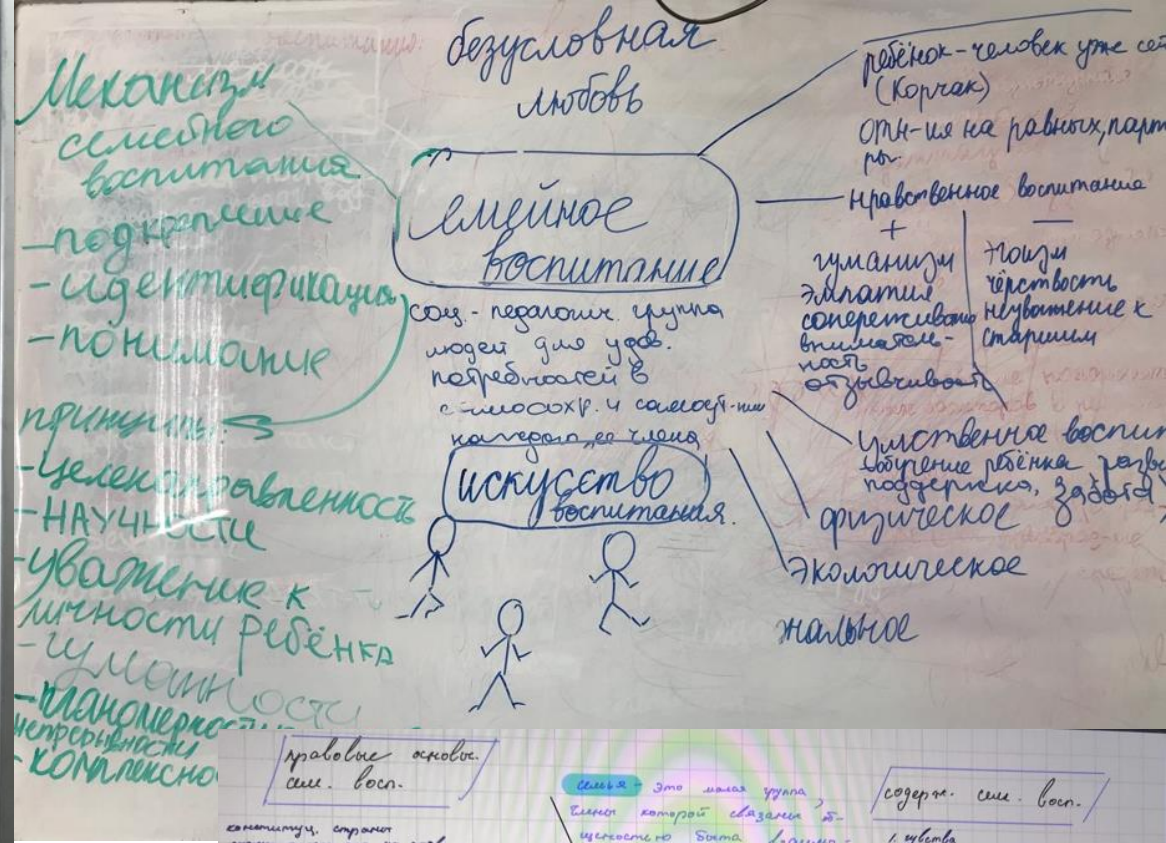 безусловная
любовь
Механизм
семейного
воспитания
-подкрепление
-идентификация
-понимание
принципы:
-целенаправленность
-НАУЧНОСТИ
-уважение к
личности ребёнка
-гуманности
-планомерности
непрерывности
-комплексно
семейное
воспитание
соц.-педагогич. группа
людей для удов.
потребностей в
самосохр. и
каждого ее члена
искусство
воспитания.
ребёнок-человек уже
(Корчак)
отн-ия на равных, парт
ры.
нравственное воспитание
+
гуманизм
эмпатия
вниматель-
ность
отзывчивость
—
эгоизм
чёрствость
неуважение к
старшим
умственное воспит
обучение ребёнка
поддержка, забота
физическое
экологическое
правовые основы.
сем. восп.
конституц. страны
семья - это малая группа,
члены которой связаны об-
щностью быта
содерж. сем. восп.
1. чувства